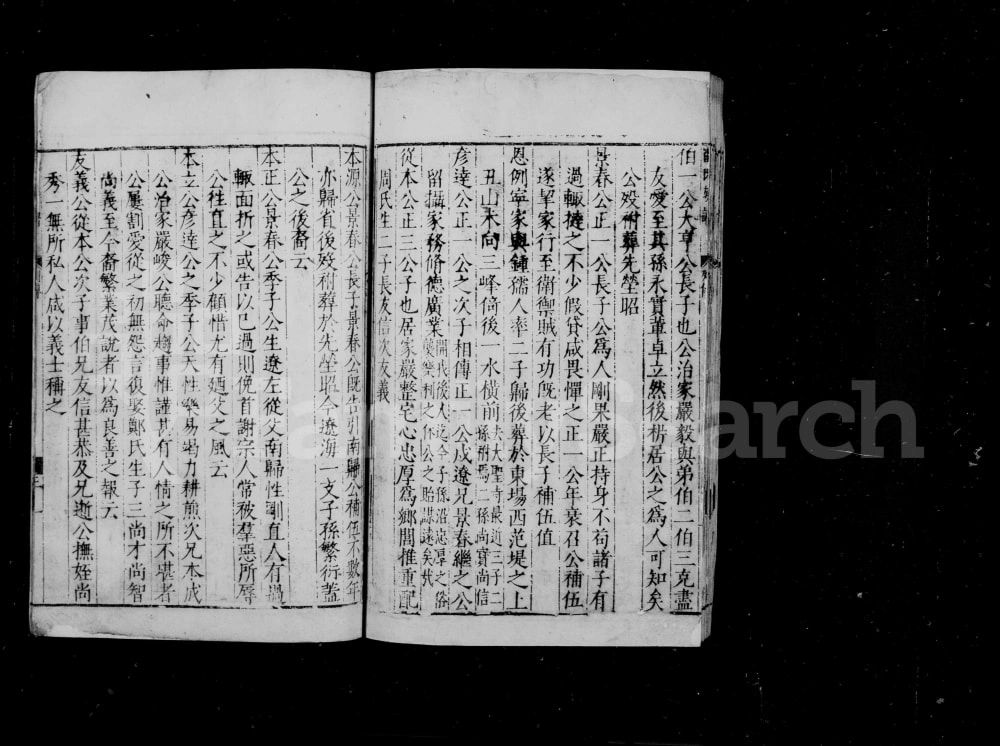 伯一公大章公長子也公治家嚴毅與弟伯二伯三克盡
友愛至其孫永實董卓立然後析居公之為人可知矣
公歿祔葬先塋昭
景春公正一公長子公爲人剛果嚴正持身不苟諸子有
過輙撻之不少假貸咸畏憚之正一公年衰召公補伍
遂挈家行至衛禦賊有功旣老以長子補伍值
恩例寜家與鍾孺人率二子歸後葬於東場西范堤之上
丑山未向三峰倚後一水橫前夫大聖寺最近三子二
孫祔焉二孫尚寳尚信
彥達公正一公之次子相傳正一公戍遼兄景春繼之公
留攝家務脩德廣業開我後人迄今子孫沿忠厚之俗
獲樂利之休公之貽謀遠矣哉
從本公正三公子也居家嚴整宅心忠厚爲鄉閭推重配
周氏生二子長友信次友義
本源公景春公長子景春公旣告引南歸公補伍不數年
亦歸省後歿祔葬於先塋昭今遼海一支子孫繁衍蓋
公之後裔云
本正公景春公季子公生遼左從父南歸性剛直人有過
輙面折之或告以己過則俛首謝宗人常被羣惡所辱
公往直之不少顧惜尤有廼父之風云
本立公彥達公之季子公天性樂易竭力耕煎次兄本成
公治家嚴峻公聽命趨事惟謹其有人情之所不堪者
公屢割愛從之初無怨言後娶鄭氏生子三尚才尚智
尚義至今裔繁業茂說者以爲良善之報云
友義公從本公次子事伯兄友信甚恭及兄逝公撫姪尚
秀一無所私人咸以義士稱之